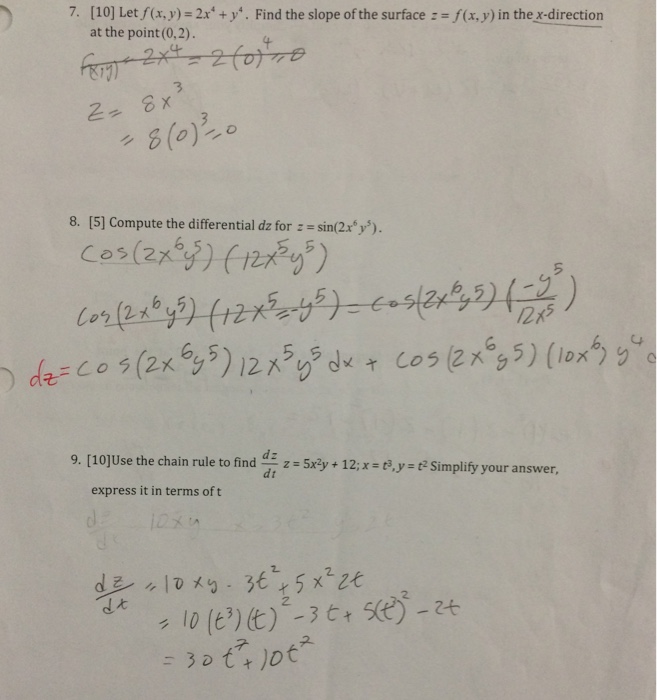 7. [10] Let f(x, y) = 2x⁴ + y⁴. Find the slope of the surface z = f(x, y) in the x-direction
at the point (0, 2).
f(x,y) = 2x⁴ = 2(0)⁴ = 0
z = 8x³
= 8(0)³ = 0
8. [5] Compute the differential dz for z = sin(2x⁶y⁵).
cos(2x⁶y⁵) (12x⁵y⁵)
cos(2x⁶y⁵) (12x⁵ = -y⁵) = cos(2x⁶y⁵) (-y⁵/12x⁵)
dz = cos(2x⁶y⁵) 12x⁵y⁵ dx + cos(2x⁶y⁵) (10x⁶) y⁴
9. [10]Use the chain rule to find dz/dt z = 5x²y + 12; x = t³, y = t² Simplify your answer,
express it in terms of t
10xy
dz/dt = 10xy - 3t² + 5x² 2t
= 10 (t³)(t)² - 3t + 5(t³)² - 2t
= 30t⁷ + 10t²